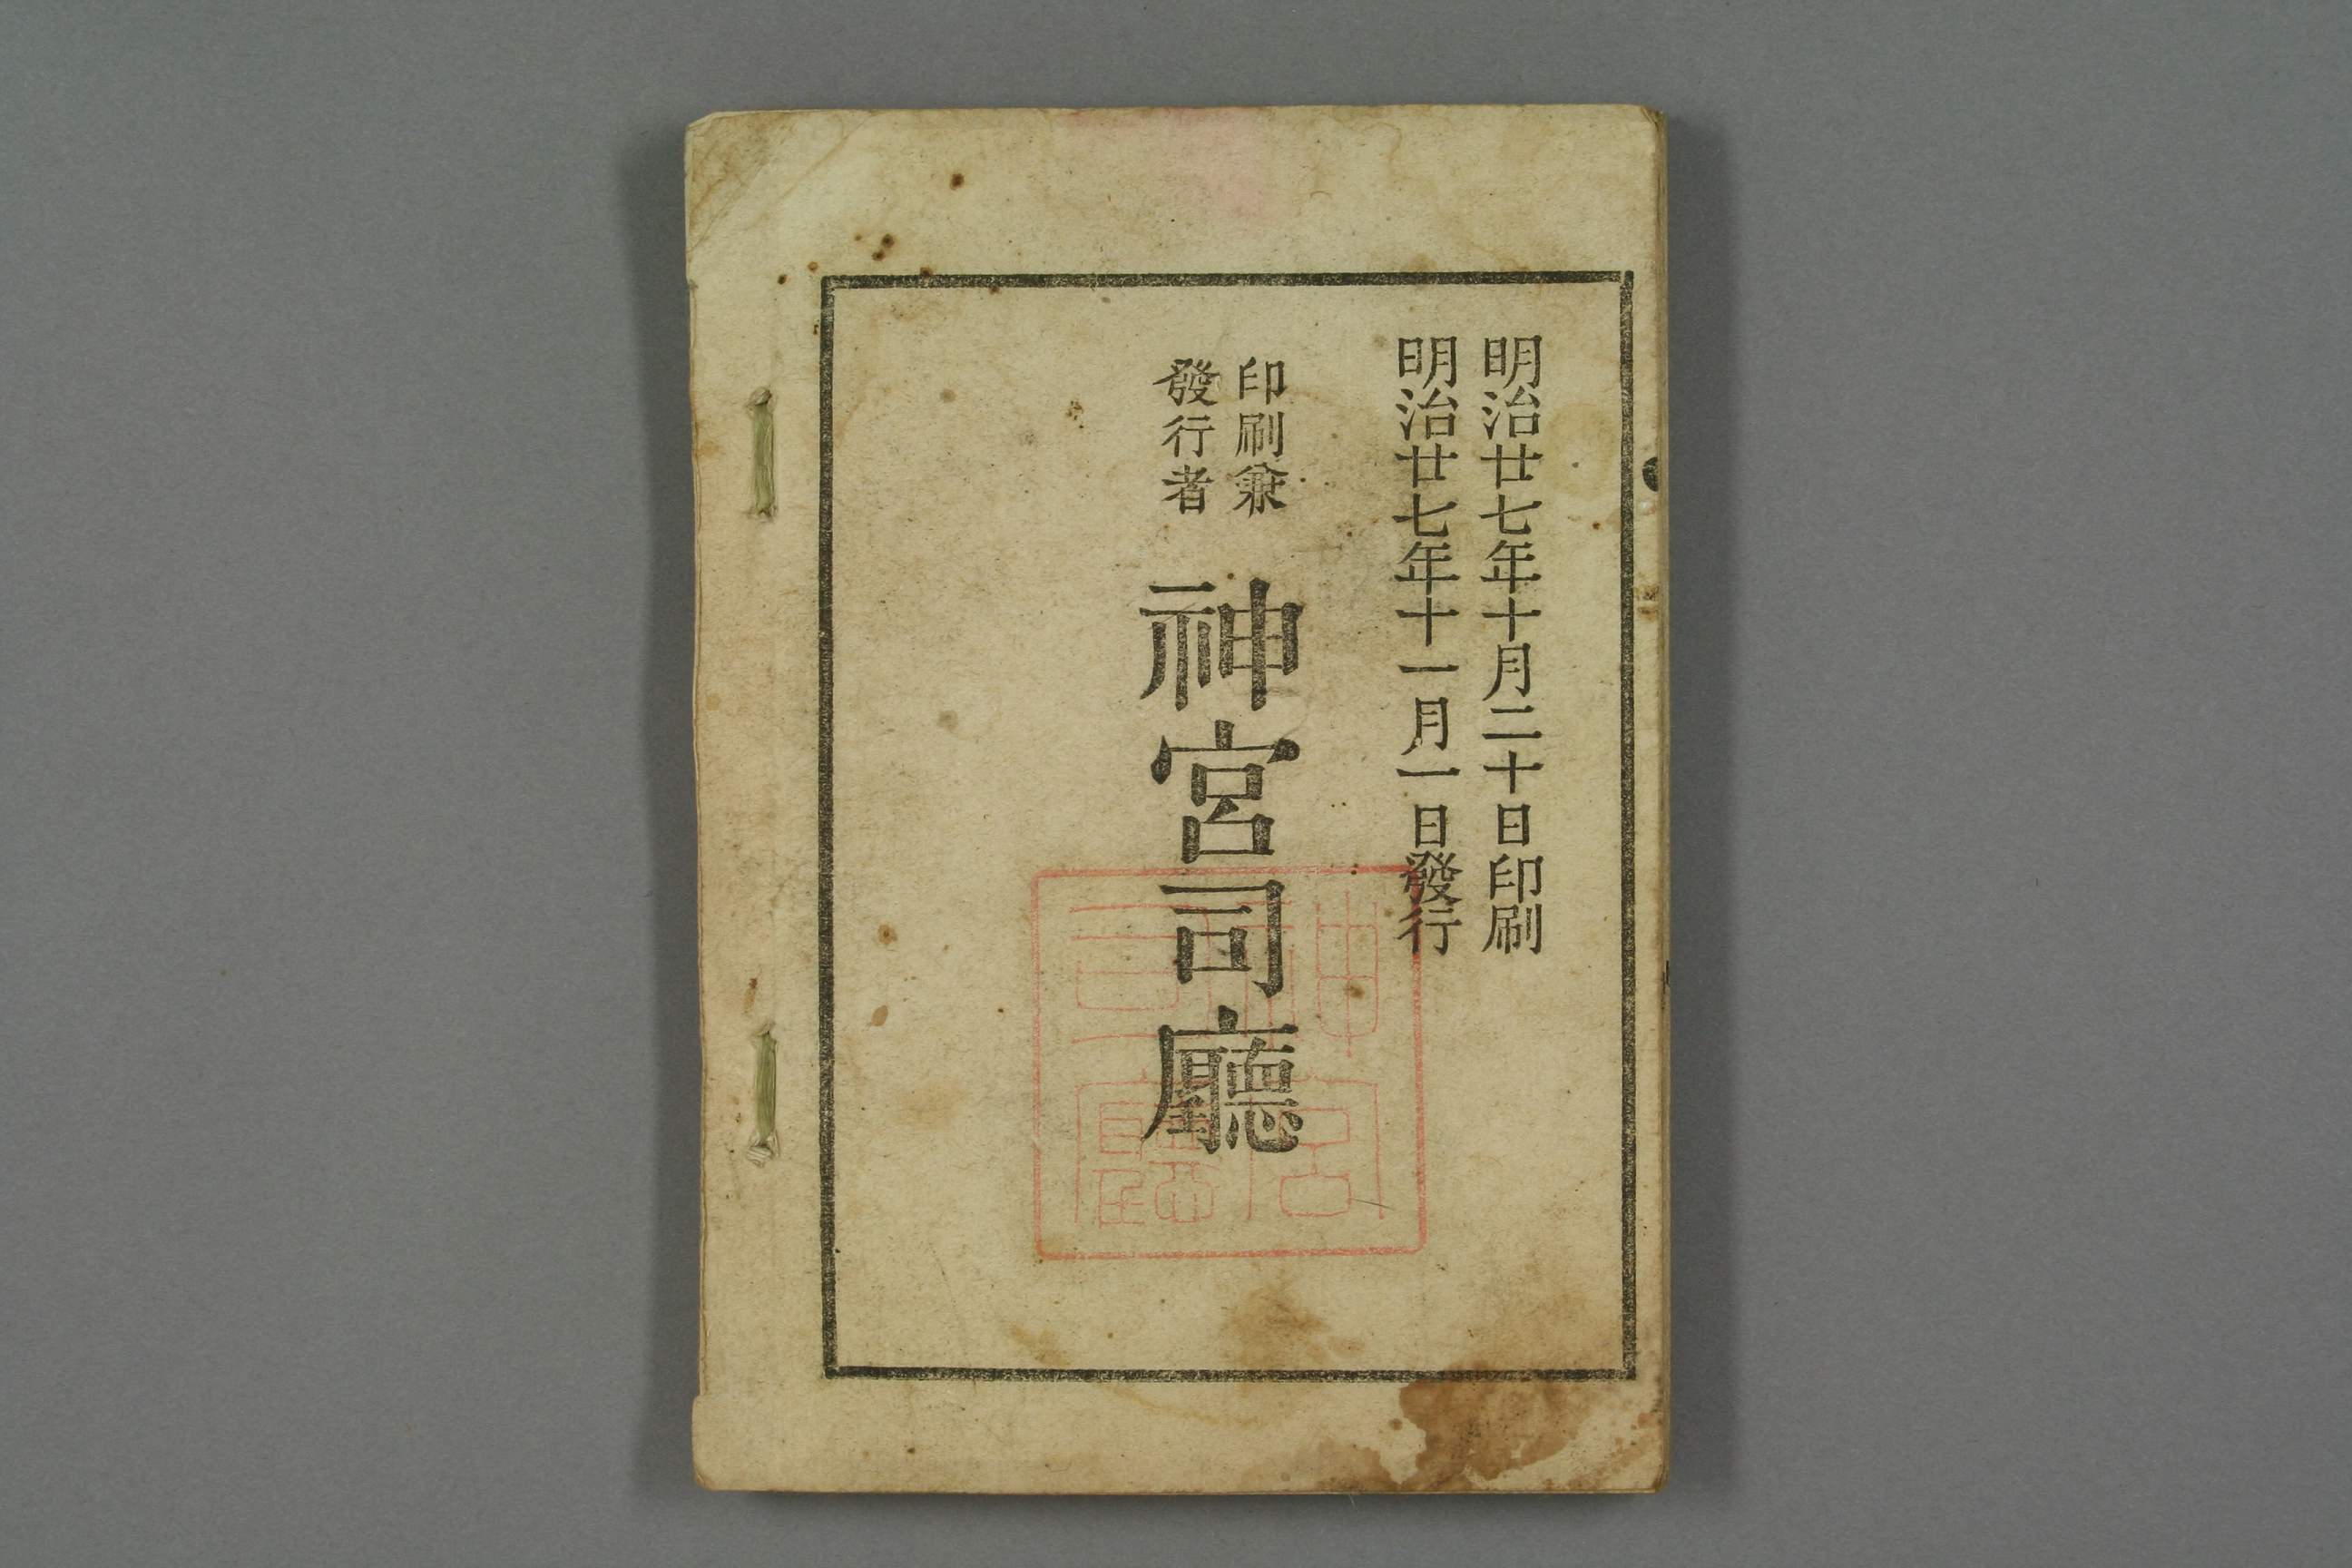 明治廿七年十月二十日印刷
明治廿七年十一月一日發行
印刷兼
發行者
神宮司廳
神宮
司廳